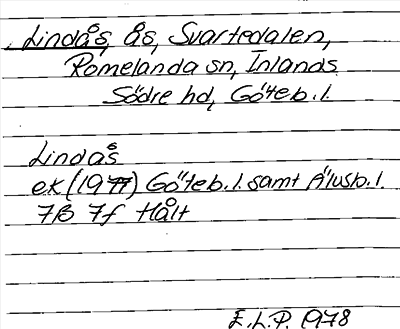 Lindås, ås, Svartedalen,
Romelanda sn, Inlands
Södre hd, Göteb. l.
Lindås
ek (1977) Göteb. l. samt Älvsb. l.
7B 7f Hålt
E. L. P. 1978